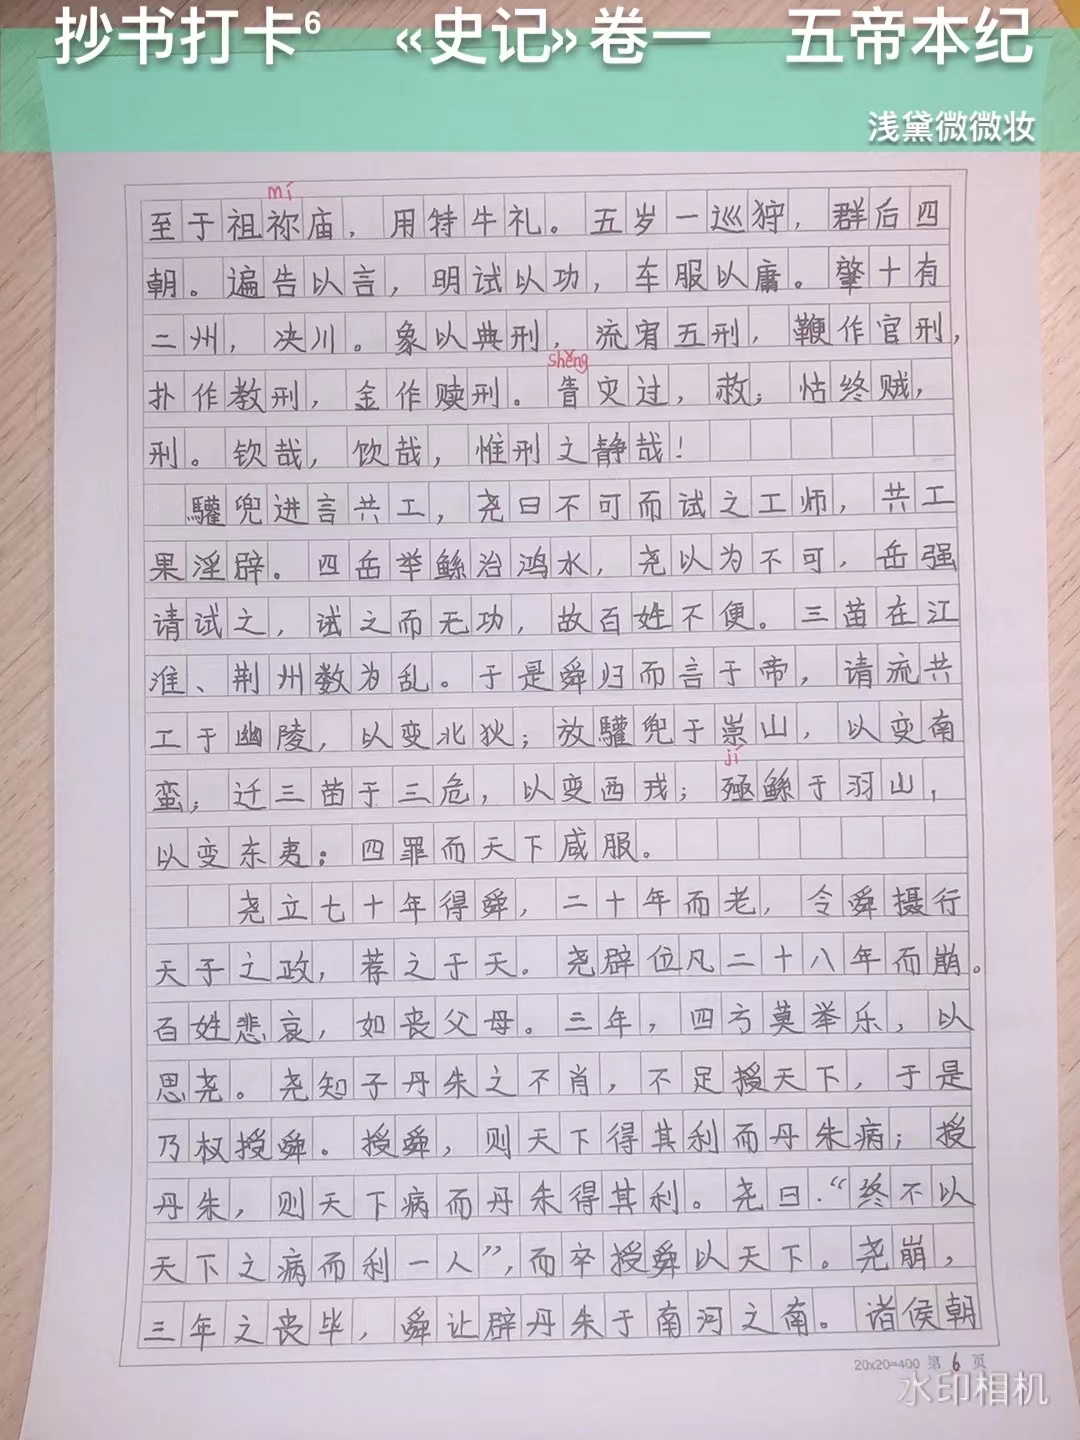 抄书打卡6 《史记》卷一 五帝本纪
浅黛微微妆
mí
至于祖祢庙，用特牛礼。五岁一巡狩，群后四
朝。遍告以言，明试以功，车服以庸。肇十有
二州，决川。象以典刑，流宥五刑，鞭作官刑，
shěng
扑作教刑，金作赎刑。眚灾过，赦；怙终贼，
刑。钦哉，钦哉，惟刑之静哉！
驩兜进言共工，尧曰不可而试之工师，共工
果淫辟。四岳举鲧治鸿水，尧以为不可，岳强
请试之，试之而无功，故百姓不便。三苗在江
淮、荆州数为乱。于是舜归而言于帝，请流共
工于幽陵，以变北狄；放驩兜于崇山，以变南
jí
蛮；迁三苗于三危，以变西戎；殛鲧于羽山，
以变东夷：四罪而天下咸服。
尧立七十年得舜，二十年而老，令舜摄行
天子之政，荐之于天。尧辟位凡二十八年而崩。
百姓悲哀，如丧父母。三年，四方莫举乐，以
思尧。尧知子丹朱之不肖，不足授天下，于是
乃权授舜。授舜，则天下得其利而丹朱病；授
丹朱，则天下病而丹朱得其利。尧曰.“终不以
天下之病而利一人”，而卒授舜以天下。尧崩，
三年之丧毕，舜让辟丹朱于南河之南。诸侯朝
20x20=400 第6页
水印相机